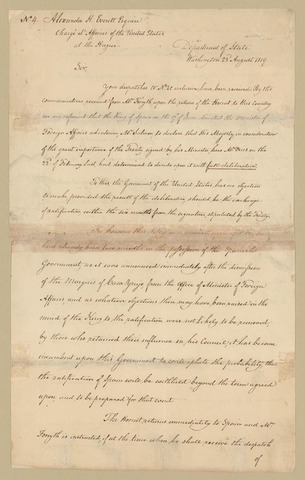 No. 4. Alexander H. Everett Esquire
Chargé d'Affaires of the United States
at the Hague.
Department of State
Washington 23 August 1819.
Sir,
Your dispatches to No. 21 inclusive, have been received. By the
communications received from Mr. Forsyth upon the return of the Hornet to this Country
we are informed that the King of Spain on the of June directed the Minister of
Foreign Affairs ad interim Mr. Salmon to declare that His Majesty in consideration
of the great importance of the Treaty signed by his Minister here Mr. Onis on the
22d of February last had determined to decide upon it with full deliberation
To this the Government of the United States has no objection
to make, provided the result of the deliberation should be the exchange
of ratifications within the six months from the signature stipulated by the Treaty
had already been two months in the possession of the Spanish
Government, as it was announced immediately after the dismission
of the Marquis of Casa Yrujo from the Office of Minister of Foreign
Affairs and as whatever objections then may have been raised in the
mind of the King to the ratification were not likely to be removed,
by those who retained their influence in his Council, it has become
incumbent upon this Government to contemplate the probability, that
the ratification of Spain will be withheld beyond the term agreed
upon and to be prepared for that event.
The Hornet returns immediately to Spain and Mr.
Forsyth is instructed, if at the time when he shall receive the dispatch
of